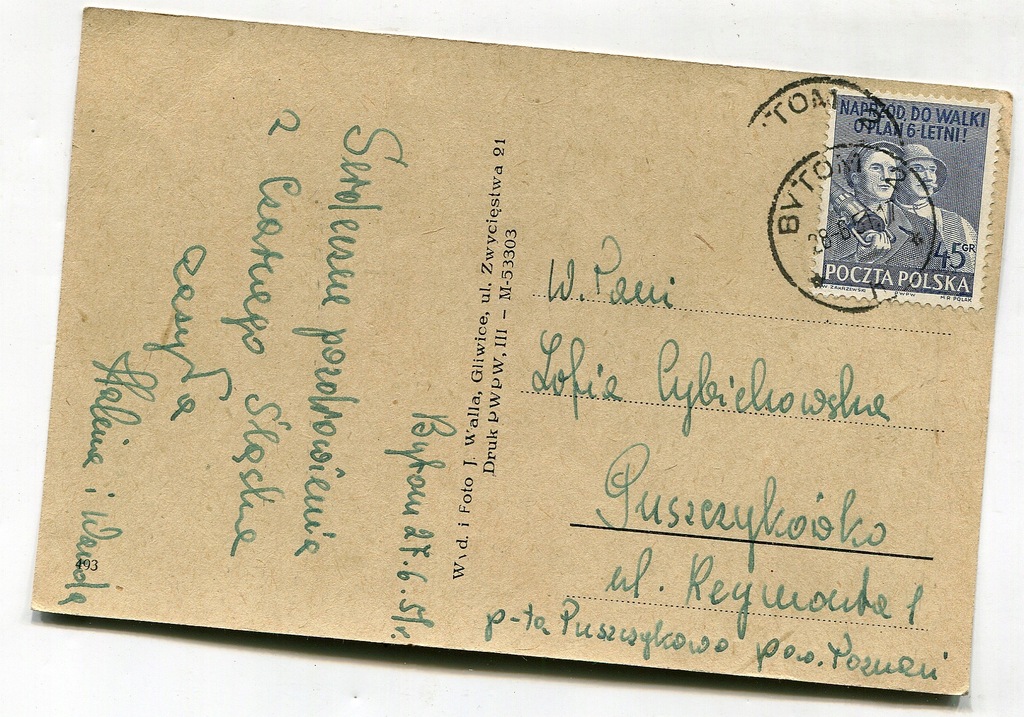 Bytom 27.6.51r.
Serdeczne pozdrowienia
z Czarnego Śląska
Halina i Wanda
493
Wyd. i Foto J. Walla, Gliwice, ul. Zwycięstwa 21
Druk PWPW, III – M-53303
NAPRZÓD, DO WALKI
O PLAN 6-LETNI!
45 GR
POCZTA POLSKA
W. ZAKRZEWSKI PWPW M.R. POLAK
BYTOM 2
28-6.51
W. Pani
Zofia Cybichowska
Puszczykówko
ul. Reymonta 1
p-ta Puszczykowo pow. Poznań